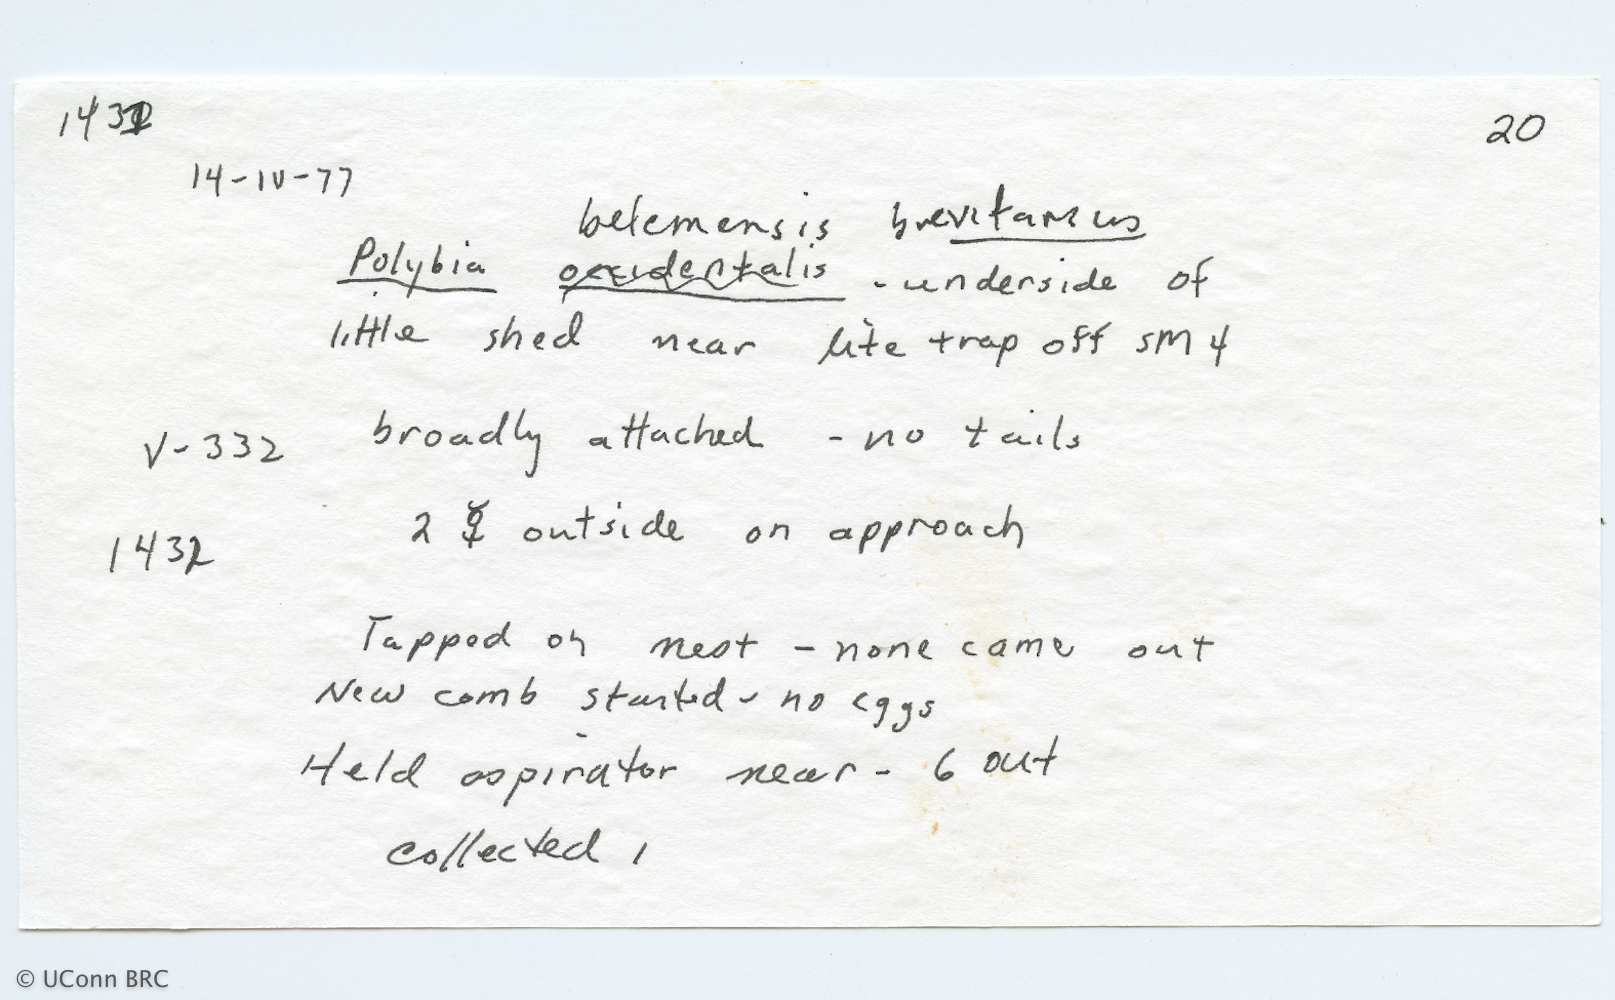 1432
20
14-IV-77
belemensis brevitarsus
Polybia occidentalis - underside of
little shed near lite trap off SM 4
V-332 broadly attached - no tails
2 ☿ outside on approach
1432
Tapped on nest - none came out
New comb started - no eggs
Held aspirator near - 6 out
collected 1
© UConn BRC